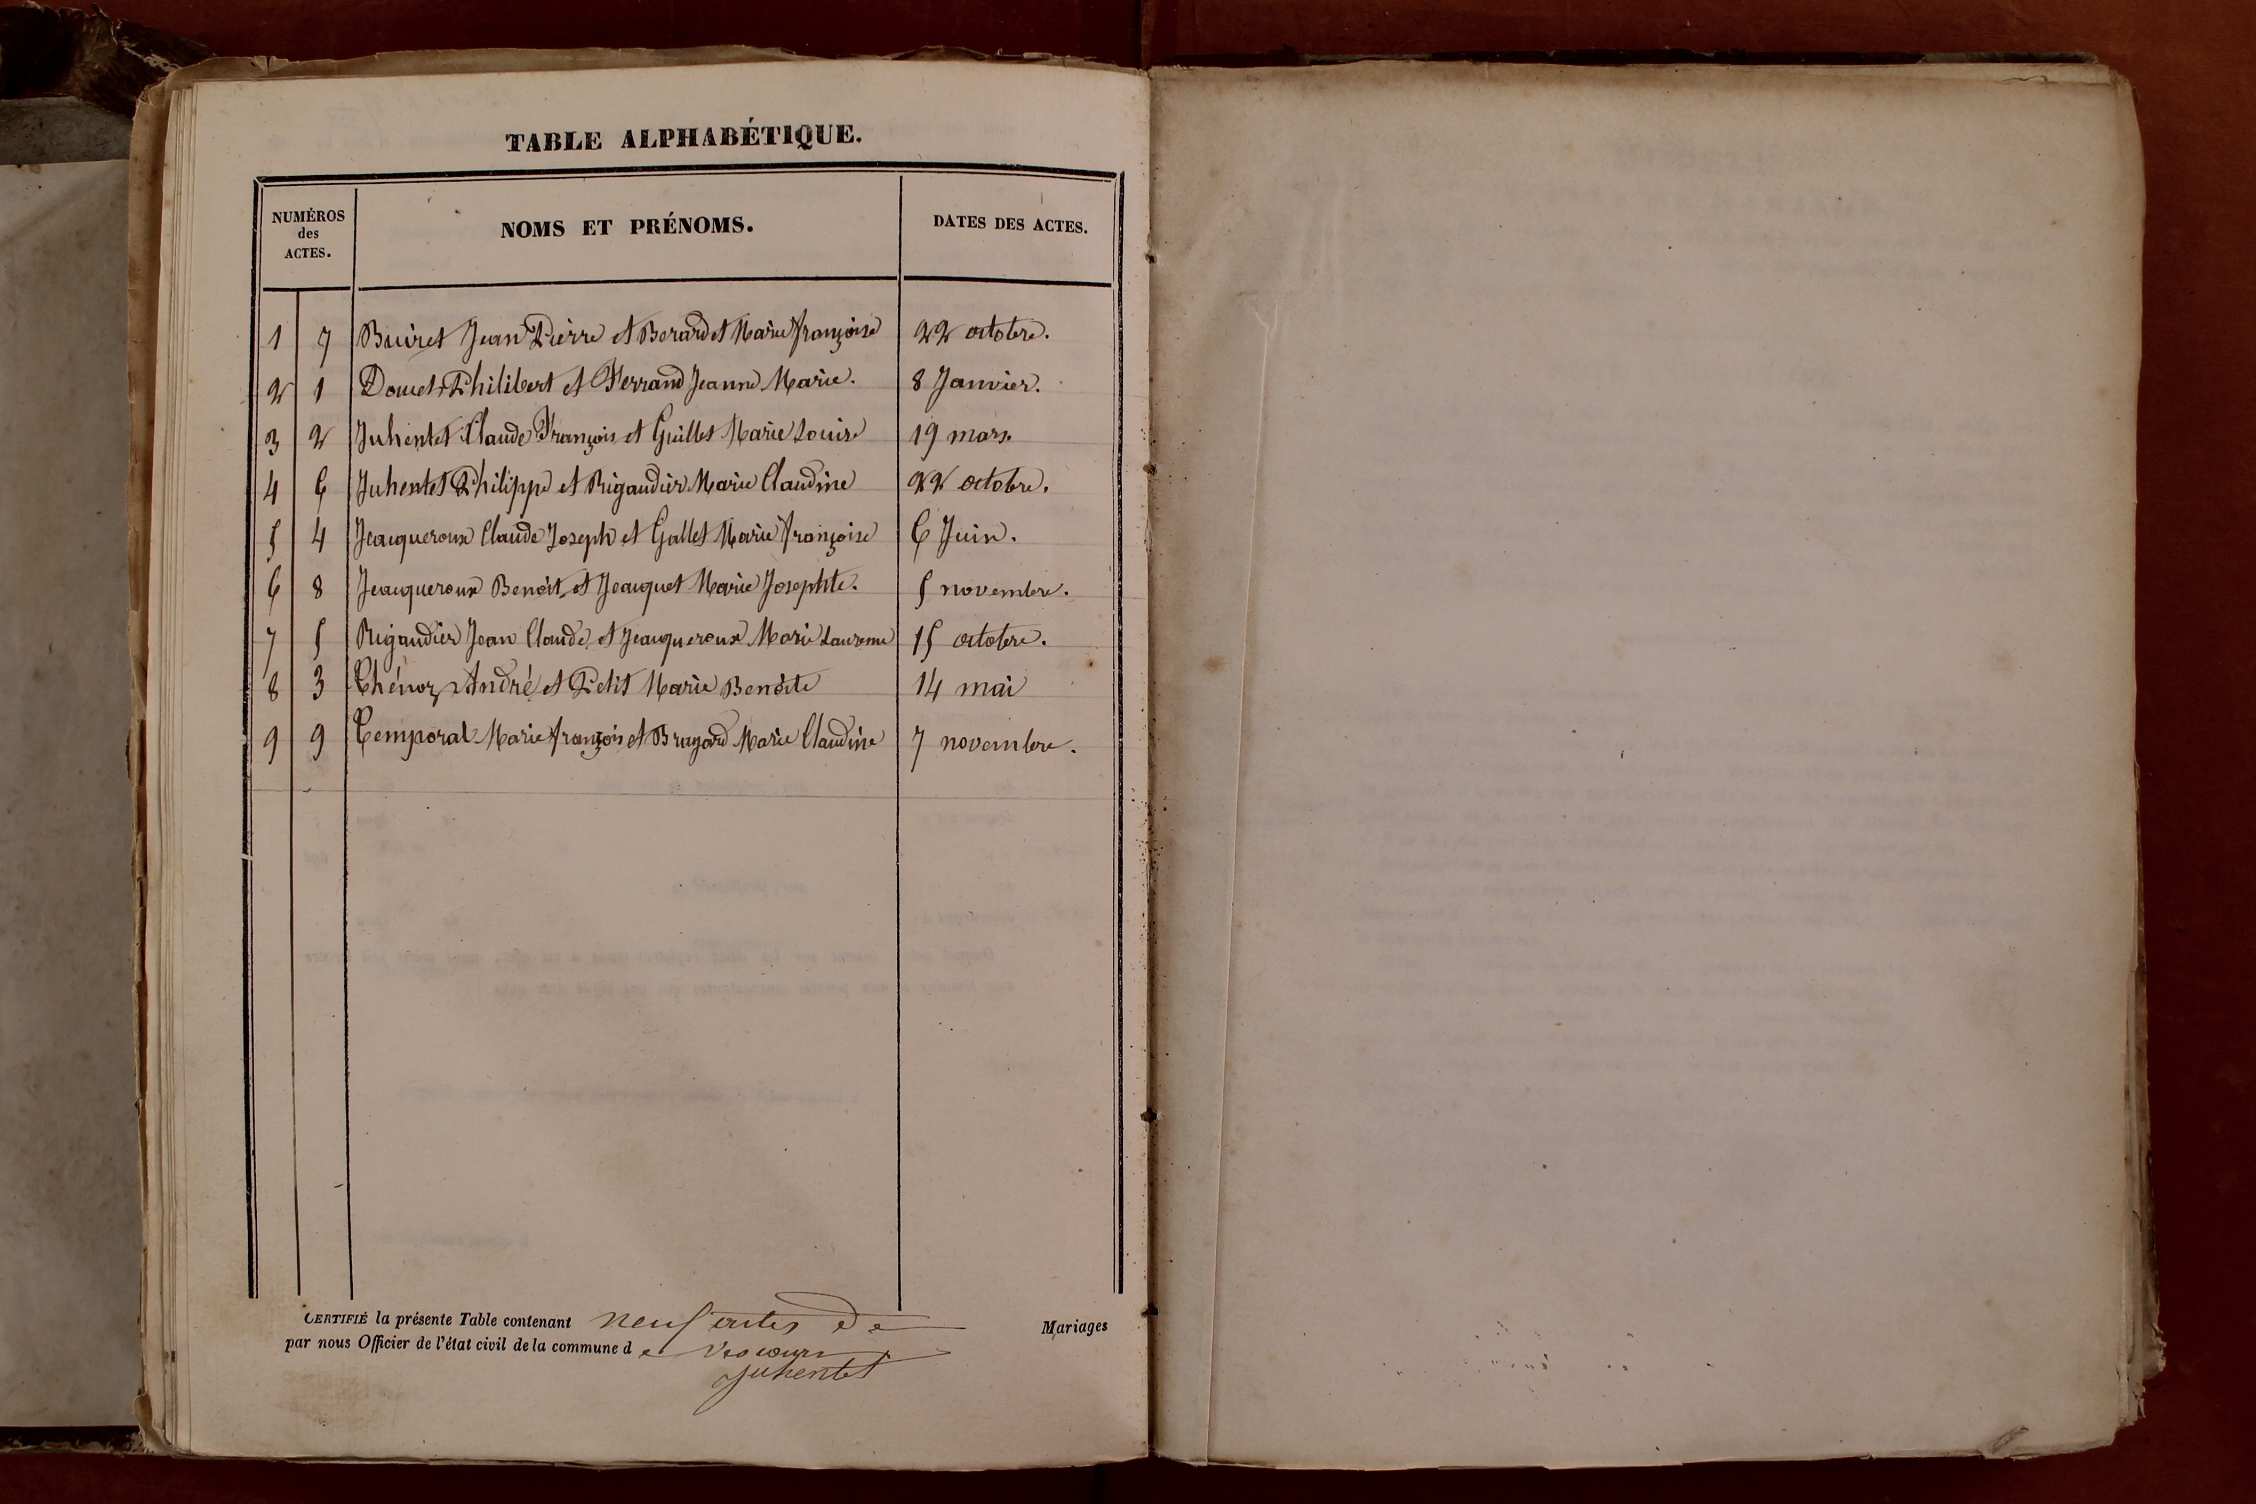 TABLE ALPHABÉTIQUE.
NUMÉROS des ACTES. NOMS ET PRÉNOMS. DATES DES ACTES.
1 7 Buiret Jean Pierre et Berardet Marie françoise 22 octobre.
2 1 Doucet Philibert et Ferrand Jeanne Marie. 8 Janvier.
3 2 Juhentet Claude François et Guillet Marie Louise 19 mars
4 6 Juhentet Philippe et Rigaudier Marie Claudine 22 octobre.
5 4 Jeacqueroux Claude Joseph et Gallet Marie françoise 6 Juin.
6 8 Jeacqueroux Benoit et Jeacquet Marie Josephte. 5 novembre.
7 5 Rigaudier Jean Claude et Jeacqueroux Marie 15 octobre.
8 3 Thénoz André et Petit Marie Benoite 14 mai
9 9 Temporal Marie françois et Bragard Marie Claudine 7 novembre.
CERTIFIÉ la présente Table contenant neuf actes de Mariages
par nous Officier de l'état civil de la commune de Vescours
Juhentet